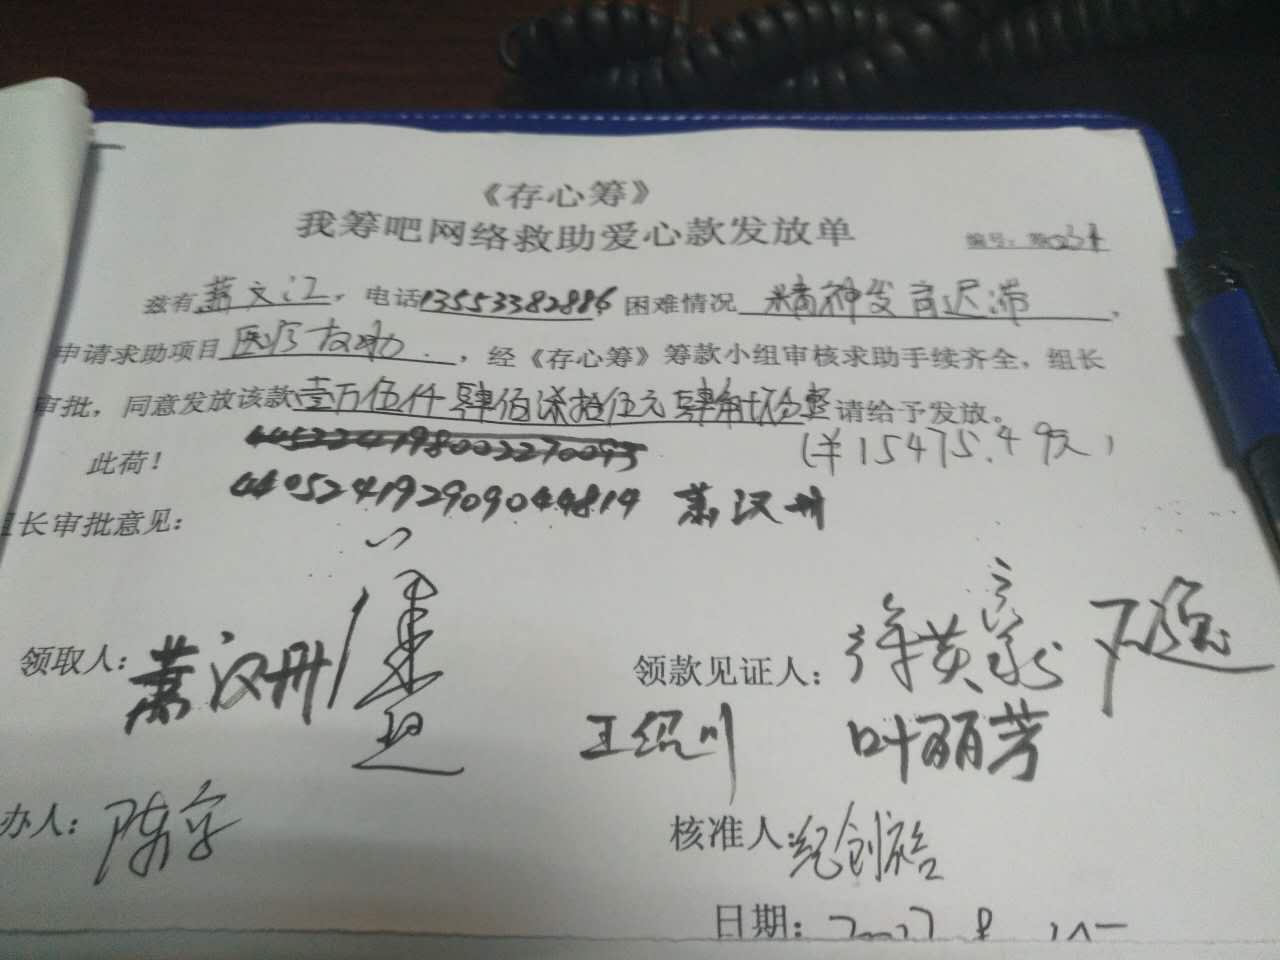 《存心筹》
我筹吧网络救助爱心款发放单
编号:
兹有 文江, 电话13553382886 困难情况 精神发育迟滞,
申请求助项目 医疗救助, 经《存心筹》筹款小组审核求助手续齐全, 组长
审批, 同意发放该款壹万伍仟肆佰柒拾伍元肆角玖分整请给予发放。
(¥15475.49元)
此荷!
440524192909044814 萧汉册
长审批意见:
领取人: 萧汉册
领款见证人:
王绍川 叶丽芳
办人: 陈
核准人: 纪创
日期: